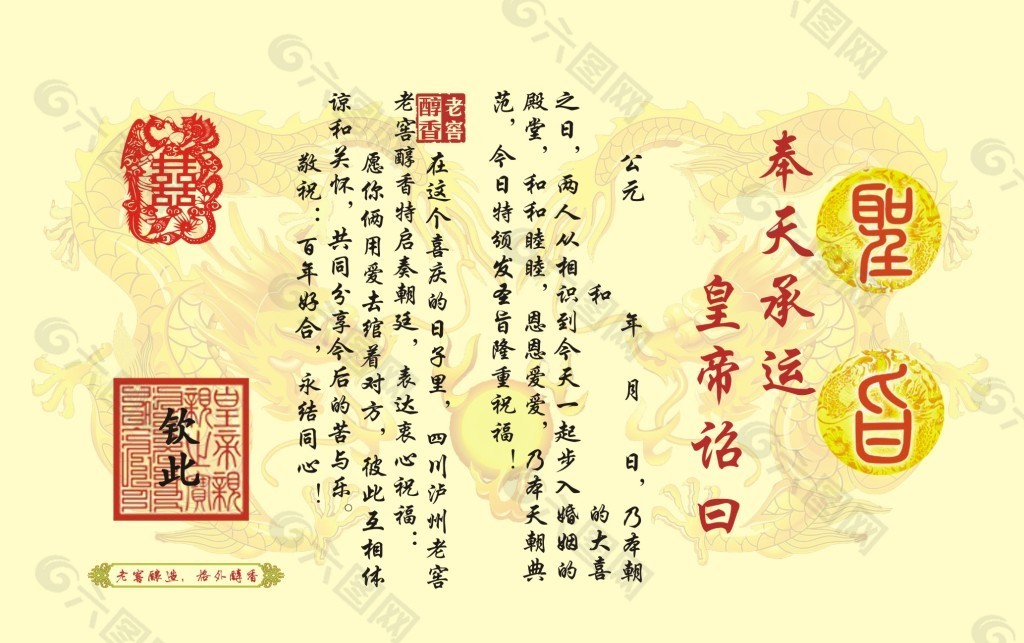 聖
旨
奉天承运
皇帝诏曰
公元 年 月 日，乃本朝
和 的大喜
之日，两人从相识到今天一起步入婚姻的
殿堂，和和睦睦，恩恩爱爱，乃本天朝典
范，今日特颁发圣旨隆重祝福！
老窖
醇香
在这个喜庆的日子里，四川泸州老窖
老窖醇香特启奏朝廷，表达衷心祝福：
愿你俩用爱去绾着对方，彼此互相体
谅和关怀，共同分享今后的苦与乐。
敬祝：百年好合，永结同心！
囍
钦此
老窖酿造，格外醇香
六图网